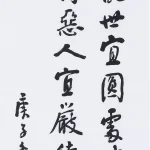 世宜圓處
惡人宜嚴待
庚子